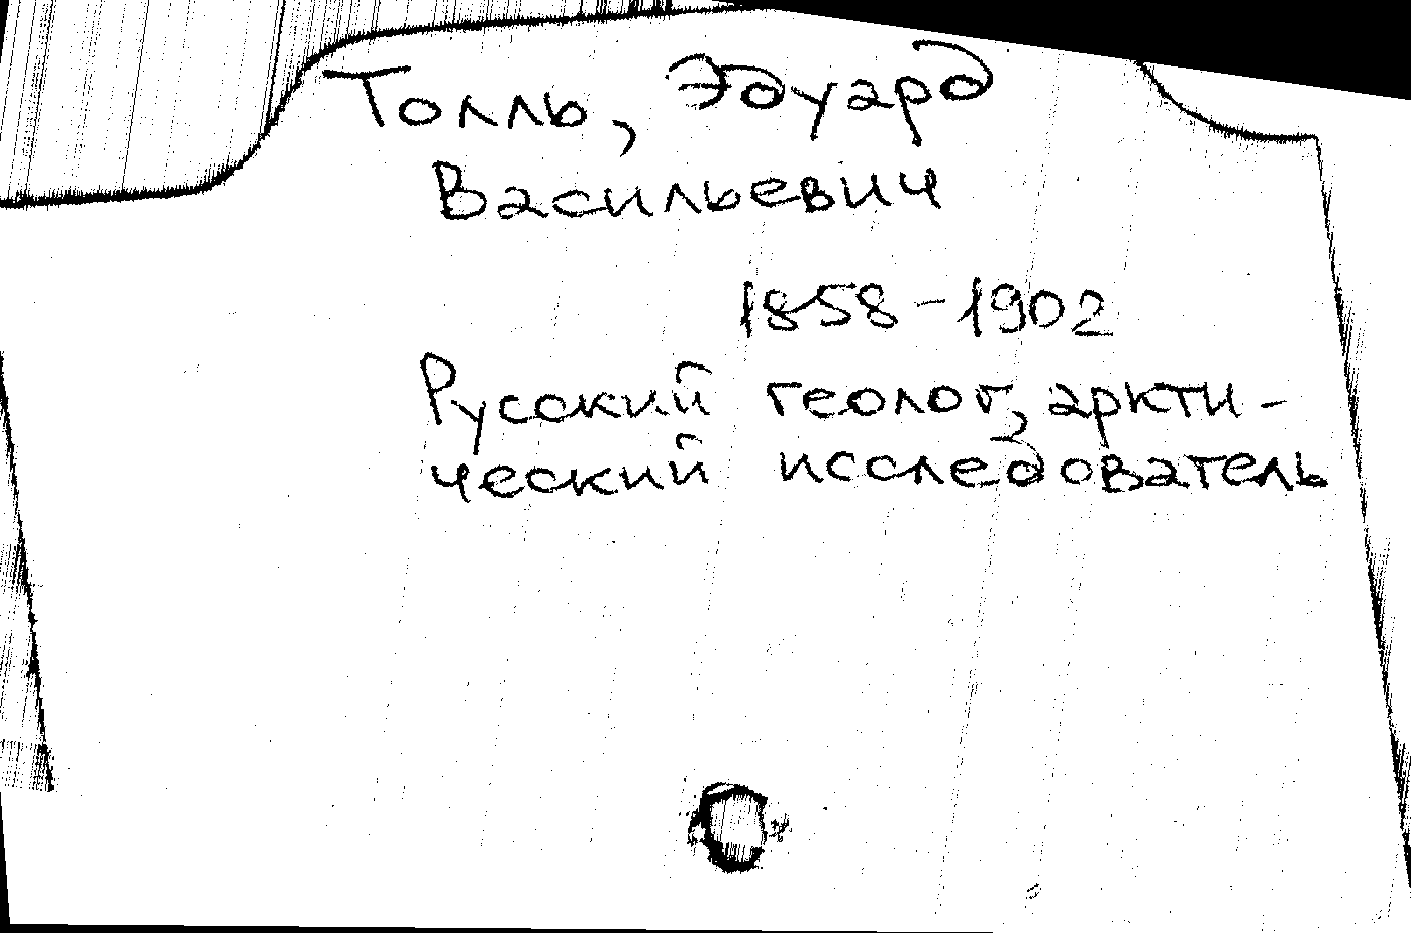 Толль, Эдуард
Васильевич
1858-1902
Русский геолог, аркти-
ческий исследователь